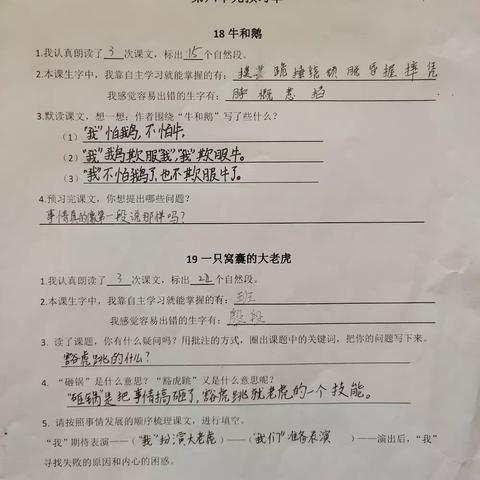 18 牛和鹅
1.我认真朗读了 3 次课文，标出 15 个自然段。
2.本课生字中，我靠自主学习就能掌握的有：跪 捶 绕 切 脱 握 摔 凭
我感觉容易出错的生字有：脖 概 患 掐
3.默读课文，想一想：作者围绕“牛和鹅”写了些什么？
（1）“我”怕鹅，不怕牛。
（2）“我”鹅欺服我”，“我”欺服牛。
（3）“我”不怕鹅了，也不欺服牛了。
4.预习完课文，你想提出哪些问题？
事情真的像第一段说那样吗？
19 一只窝囊的大老虎
1.我认真朗读了 3 次课文，标出 21 个自然段。
2.本课生字中，我靠自主学习就能掌握的有：班
我感觉容易出错的生字有：殷 段
3. 读了课题，你有什么疑问吗？用批注的方式，圈出课题中的关键词，把你的问题写下来。
豁虎跳的什么？
4. “砸锅”是什么意思？“豁虎跳”又是什么意思呢？
“砸锅”是把事情搞砸了，豁虎跳就老虎的一个技能。
5. 请按照事情发展的顺序梳理课文，进行填空。
“我”期待表演——（“我”扮演大老虎）——（“我们”准备表演 ）——演出后，“我”
寻找失败的原因和内心的困惑。